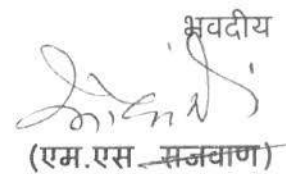 भवदीय
(एम.एस. सजवाण)